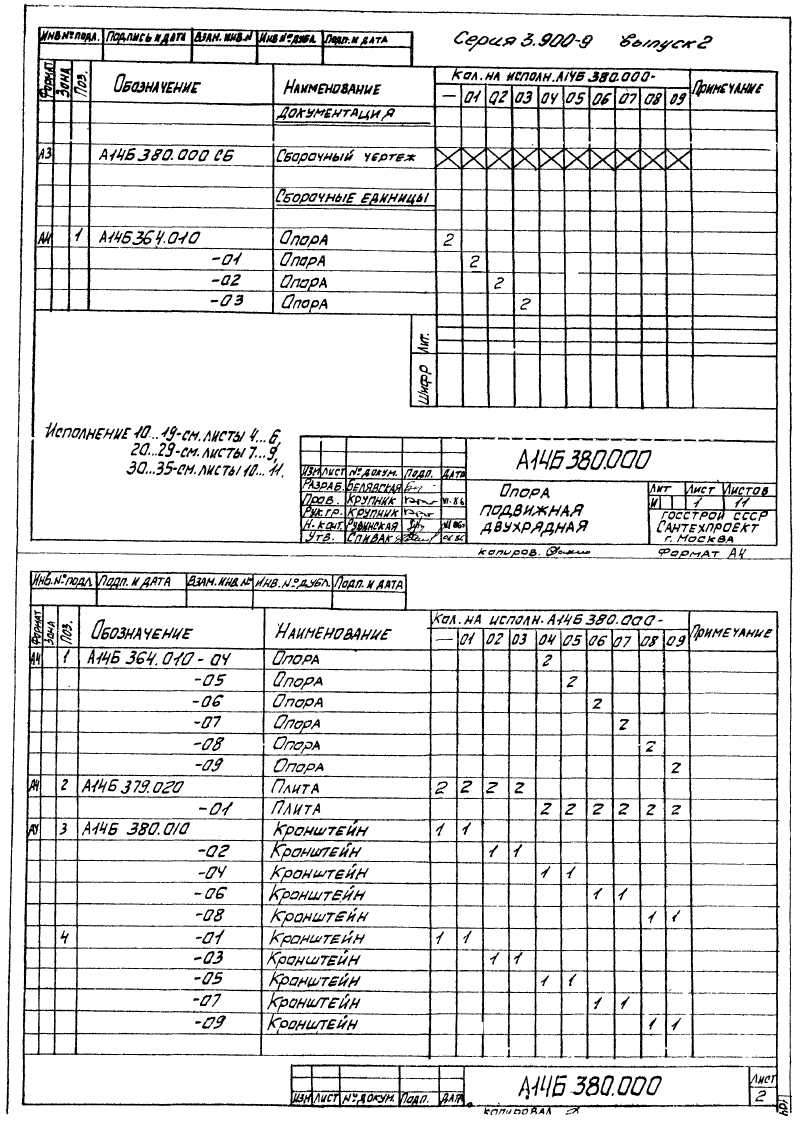 Серия 3.900-9 Выпуск 2
Инв№подл. Подпись и дата Взам.инв.№ Инв№дубл. Подп.и дата
Формат Зона Поз. Обозначение Наименование Кол.на исполн.А14Б 380.000- Примечание
— 01 02 03 04 05 06 07 08 09
Документация
А3 А14Б 380.000 СБ Сборочный чертеж X X X X X X X X X X
Сборочные единицы
А4 1 А14Б 364.010 Опора 2
-01 Опора 2
-02 Опора 2
-03 Опора 2
Лит.
Шифр
Исполнение 10...19-см.листы 4...6,
20...29-см.листы 7...9,
30...35-см.листы 10...11.
А14Б 380.000
Изм Лист №докум. Подп. Дата
Разраб. Белявская
Пров. Крупник
Рук.гр. Крупник
Н.конт. Рувинская
Утв. Спивак
Опора
подвижная
двухрядная
Лит Лист Листов
И 1 11
Госстрой СССР
Сантехпроект
г. Москва
копиров. Формат А4
Инв.№подл. Подп. и дата Взам. инв.№ Инв. №дубл. Подп. и дата
Формат Зона Поз. Обозначение Наименование Кол. на исполн. А14Б 380.000- Примечание
— 01 02 03 04 05 06 07 08 09
А4 1 А14Б 364.010 - 04 Опора 2
-05 Опора 2
-06 Опора 2
-07 Опора 2
-08 Опора 2
-09 Опора 2
А4 2 А14Б 379.020 Плита 2 2 2 2
-01 Плита 2 2 2 2 2 2
А4 3 А14Б 380.010 Кронштейн 1 1
-02 Кронштейн 1 1
-04 Кронштейн 1 1
-06 Кронштейн 1 1
-08 Кронштейн 1 1
4 -01 Кронштейн 1 1
-03 Кронштейн 1 1
-05 Кронштейн 1 1
-07 Кронштейн 1 1
-09 Кронштейн 1 1
Изм Лист №докум. Подп. Дата
А14Б 380.000
Лист
2
копировал